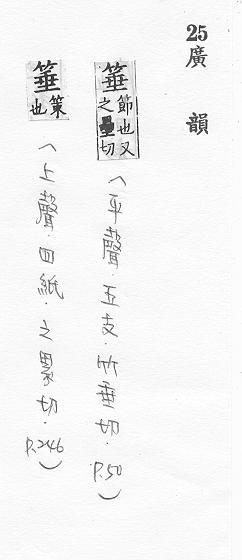 25
廣韻
箠 節也又之壘切
(平聲.五支.竹垂切.P.50)
箠 策也
(上聲.四紙.之累切.P.246)